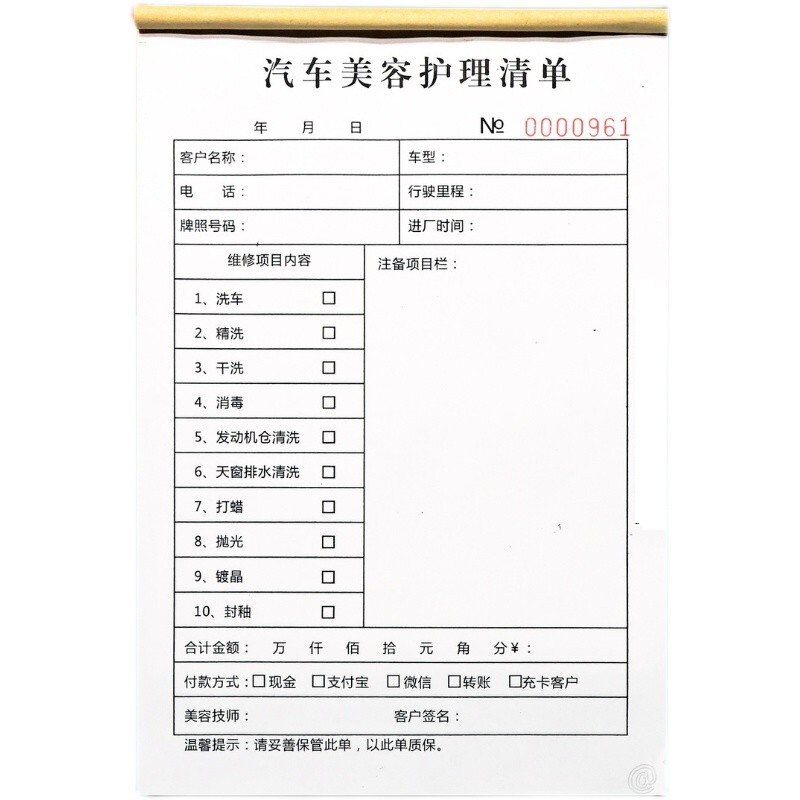 汽车美容护理清单
年 月 日 № 0000961
客户名称： 车型：
电 话： 行驶里程：
牌照号码： 进厂时间：
维修项目内容 注备项目栏：
1、洗车 □
2、精洗 □
3、干洗 □
4、消毒 □
5、发动机仓清洗 □
6、天窗排水清洗 □
7、打蜡 □
8、抛光 □
9、镀晶 □
10、封釉 □
合计金额： 万 仟 佰 拾 元 角 分￥：
付款方式：□现金 □支付宝 □微信 □转账 □充卡客户
美容技师： 客户签名：
温馨提示：请妥善保管此单，以此单质保。